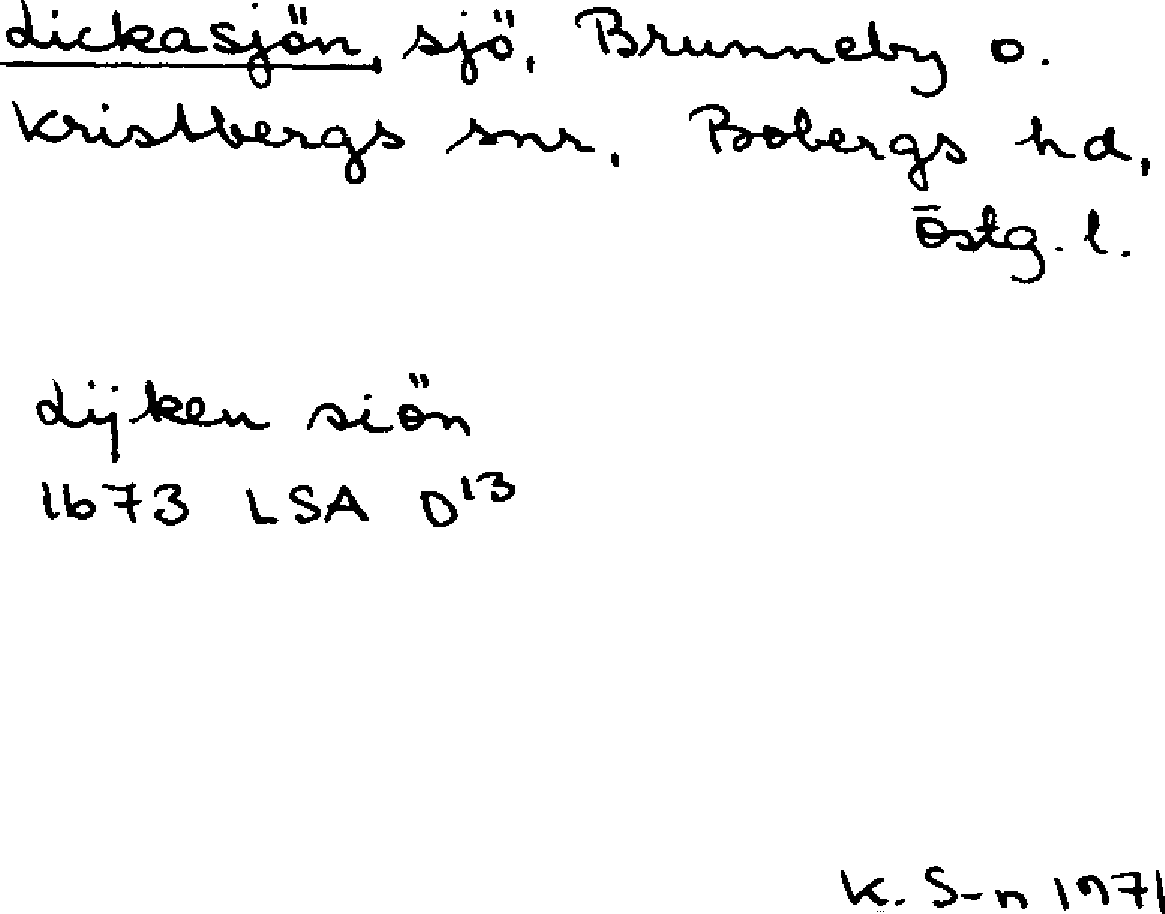 Lickasjön, sjö, Brunneby o.
Kristbergs snr, Bobergs hd,
Östg. l.
Lijken siön
1673 LSA D13
K. S-n 1971